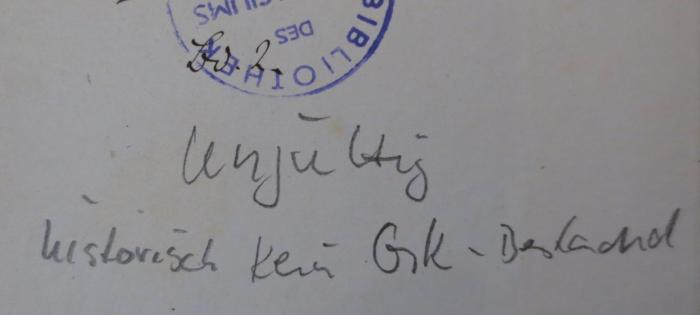 BIBLIOTHEK
DES
Bd. 2.
Ungültig
historisch kein GK-Bestand